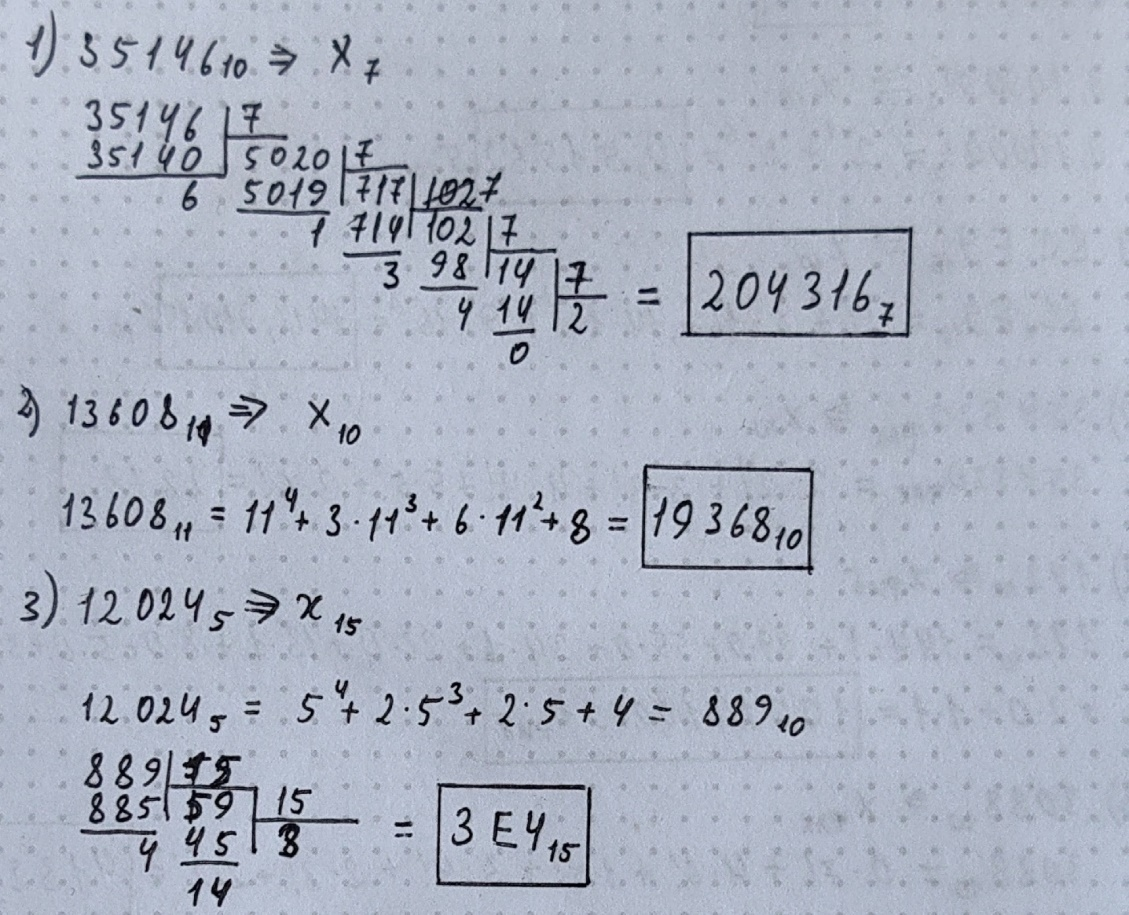 1) 35146₁₀ ⇒ X₇
35146 | 7
35140 | 5020 | 7
6 5019 | 717 | 7
1 714 | 102 | 7
3 98 | 14 | 7
4 14 | 2 = 204316₇
0
2) 13608₁₁ ⇒ X₁₀
13608₁₁ = 11⁴ + 3·11³ + 6·11² + 8 = 19368₁₀
3) 12024₅ ⇒ x₁₅
12024₅ = 5⁴ + 2·5³ + 2·5 + 4 = 889₁₀
889 | 15
885 | 59 | 15
4 45 | 3 = 3E4₁₅
14